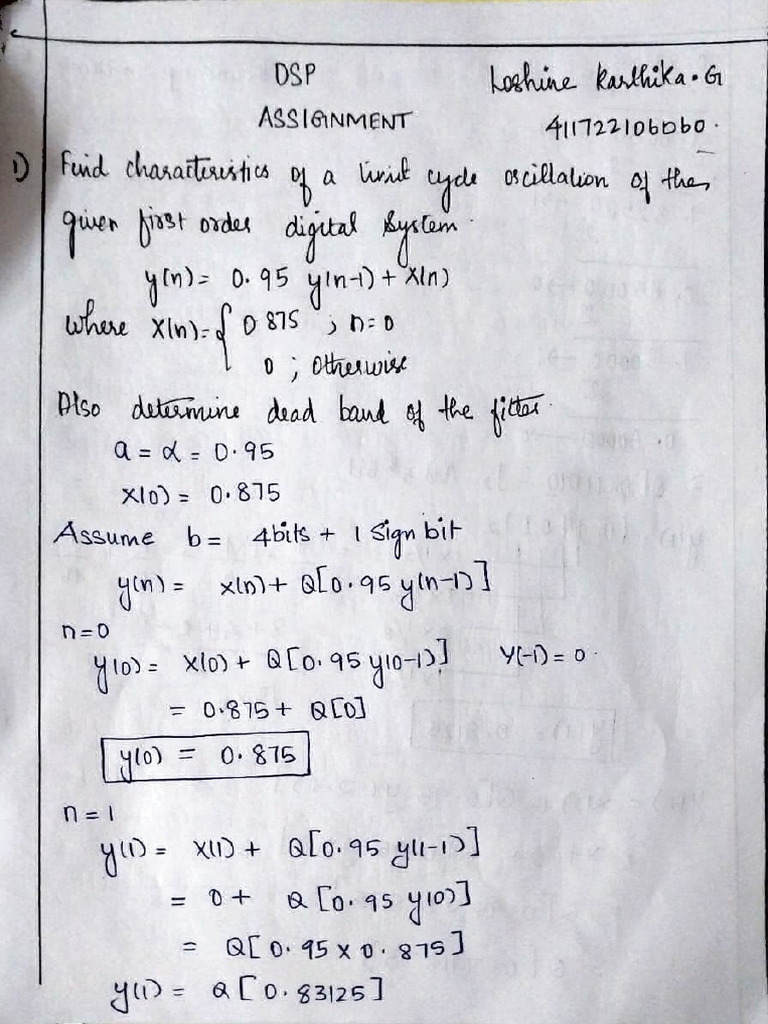 DSP
Loshine Karthika. G
ASSIGNMENT
411722106060.
1) Find characteristics of a limit cycle oscillation of the
given first order digital system.
y(n) = 0.95 y(n-1) + x(n)
where x(n) = { 0.875 ; n=0
0 ; otherwise
Also determine dead band of the filter.
a = α = 0.95
x(0) = 0.875
Assume b = 4bits + 1 sign bit
y(n) = x(n) + Q[0.95 y(n-1)]
n=0
y(0) = x(0) + Q[0.95 y(0-1)] y(-1) = 0.
= 0.875 + Q[0]
y(0) = 0.875
n=1
y(1) = x(1) + Q[0.95 y(1-1)]
= 0 + Q[0.95 y(0)]
= Q[0.95 x 0.875]
y(1) = Q[0.83125]